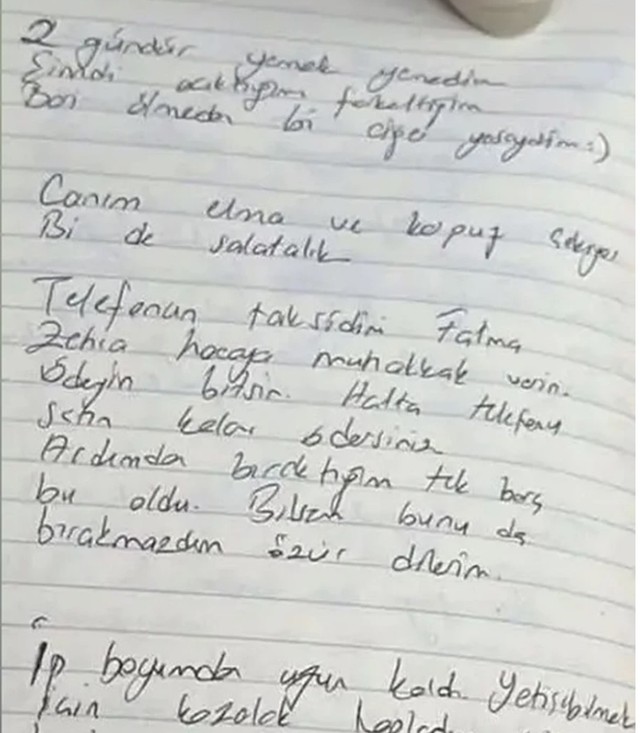 2 gündür yemek yemedim
Şimdi acıktığımı farkettim
Ben ölmeden bi çiğe yaşıyorım :)
Canım elma ve karpuz çekiyor
Bi de salatalık
Telefonun taksidini Fatma
Zehra hocaya muhakkak verin.
Ödeyin bitsin. Hatta telefonu
satın kalan ödersiniz
Ardımda bıraktığım tek borç
bu oldu. Bilsem bunu da
bırakmazdım özür dilerim.
İp boyumdan uzun kaldı. Yetişebilmek
için kozalak